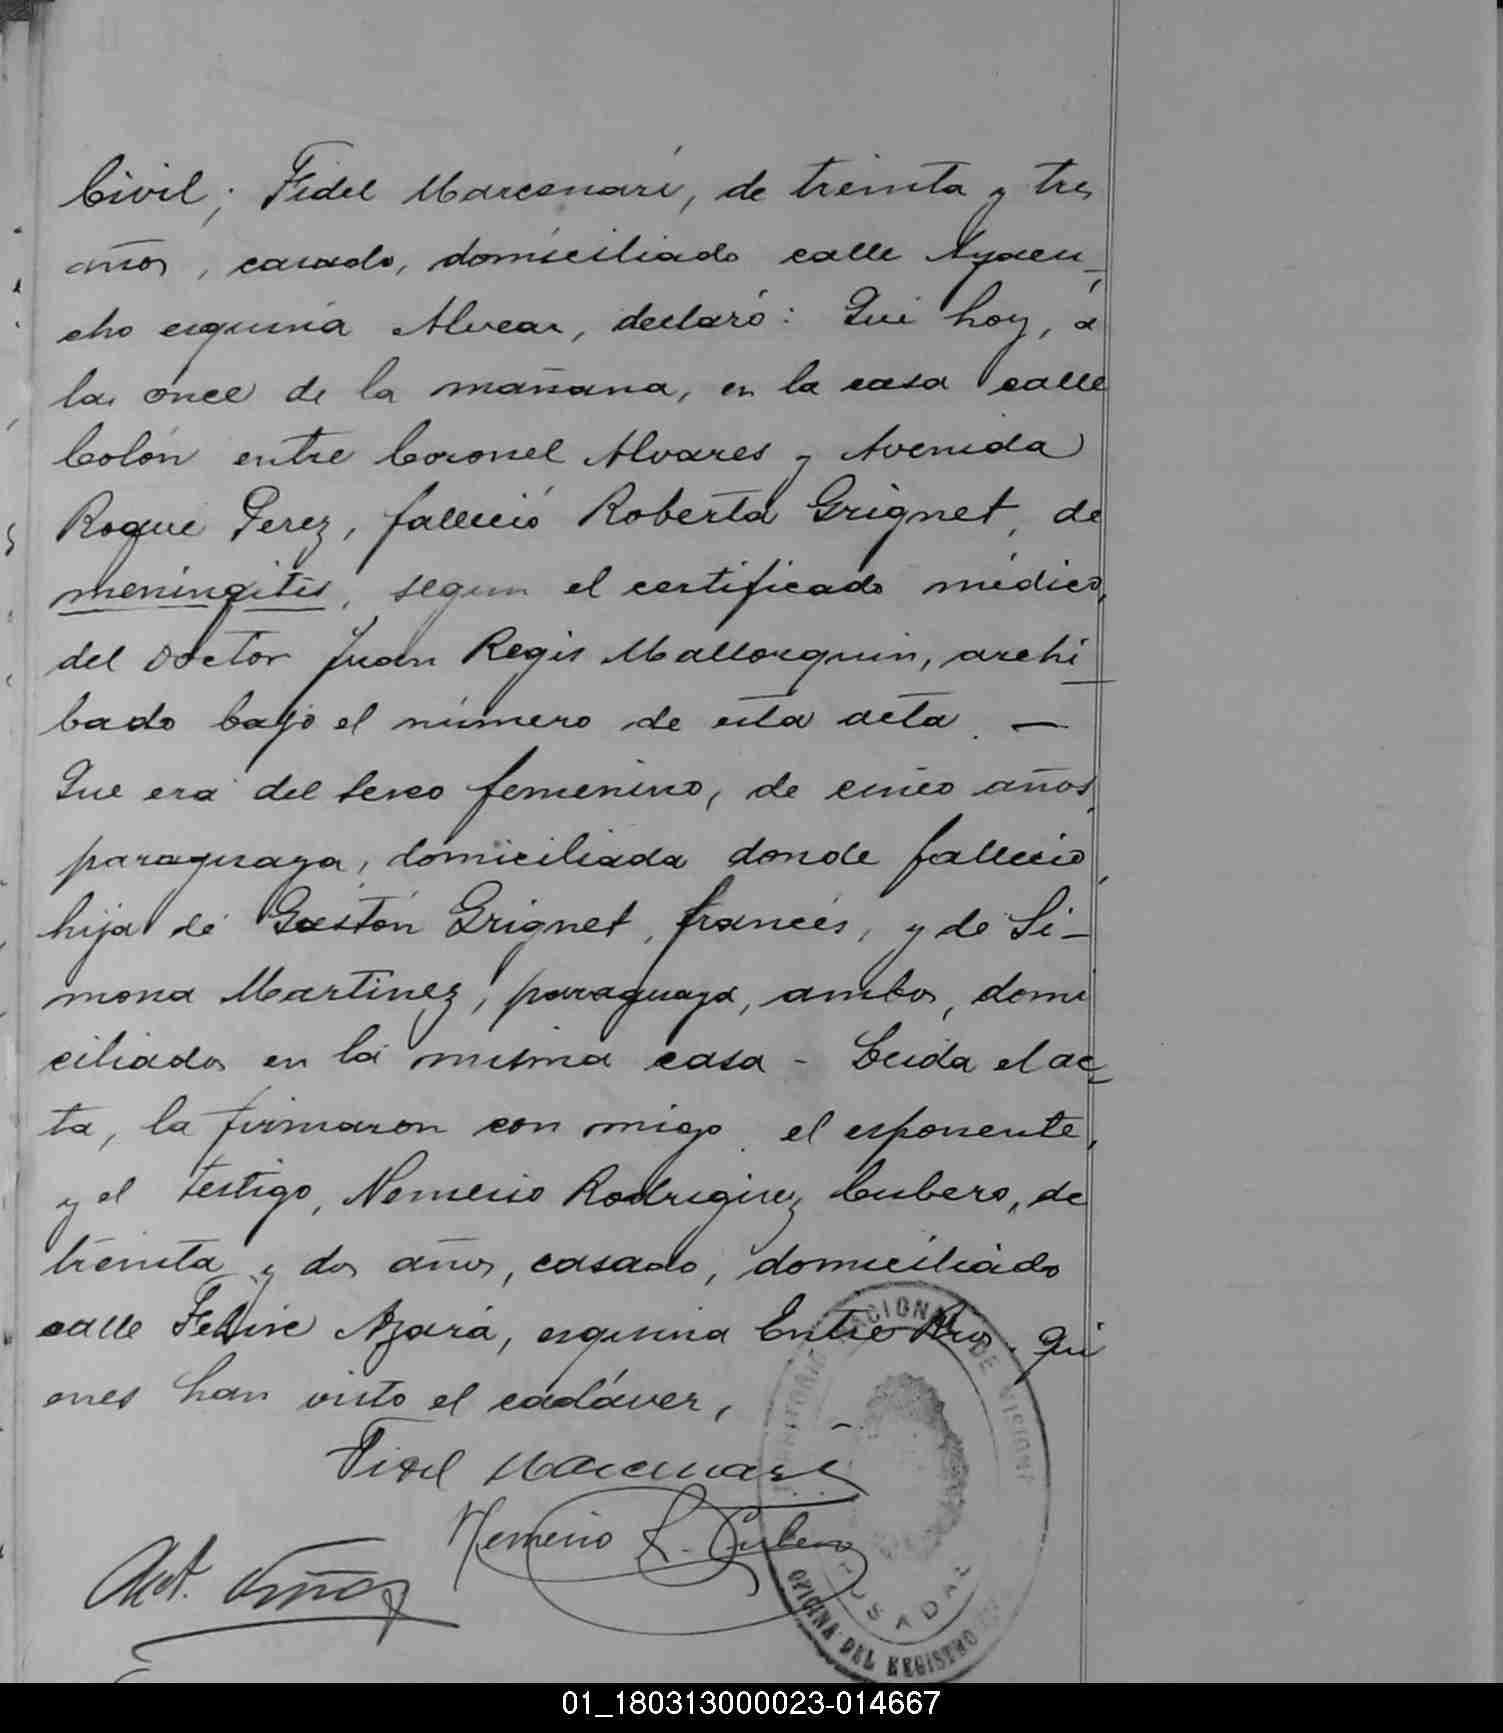 Civil; Fidel Marcenari, de treinta y tres
años, casado, domiciliado calle Ayacu-
cho esquina Alvear, declaró: Que hoy, a
las once de la mañana, en la casa calle
Colón entre Coronel Alvares y Avenida
Roque Perez, falleció Roberta Grignet, de
meningitis, segun el certificado médico,
del Doctor Juan Regis Mallorquin, archi
bado bajo el número de esta acta. —
Que era del sexo femenino, de cinco años,
paraguaya, domiciliada donde falleció,
hija de Gastón Grignet, francés, y de Si-
mona Martinez, paraguaya, ambos, domi
ciliados en la misma casa - Leida el ac-
ta, la firmaron con migo el esponente,
y el testigo, Nemecio Rodriguez Cubero, de
treinta y dos años, casado, domiciliado
calle Felix Azara, esquina Entre Rios. Qui
enes han visto el cadáver,
Fidel Marcenari
Nemecio R. Cubero
TERRITORIO NACIONAL DE MISIONES
POSADAS
OFICINA DEL REGISTRO
01_180313000023-014667